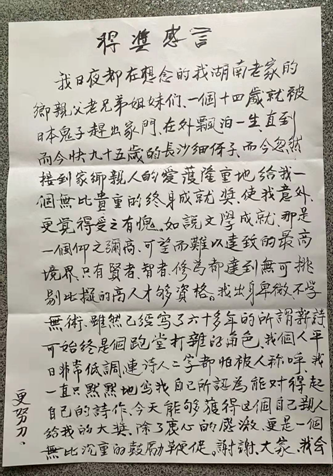 得獎感言
我日夜都在想念的我湖南老家的
鄉親父老兄弟姐妹們、一個十四歲就被
日本鬼子趕出家門、在外飄泊一生、直到
而今快九十五歲的長沙細伢子、而今忽然
接到家鄉親人的愛護隆重地給我一
個無比貴重的終身成就獎、使我意外、
更覺得受之有愧。如說文學成就、那是
一個仰之彌高、可望而難以達致的最高
境界、只有賢者、智者、修為都達到無可挑
剔比擬的高人才夠資格。我出身卑微、不學
無術、雖然已經寫了六十多年的所謂新詩
可始終是個跑堂打雜的角色。我個人平
日非常低調、連詩人二字都怕被人称呼、我
一直只默默地寫我自己所認為能对得起
自己的詩作、今天能够獲得這個自己親人
給我的大獎、除了衷心的感激、更是一個
無比沉重的鼓勵鞭促、謝謝大家、我会
更努力．